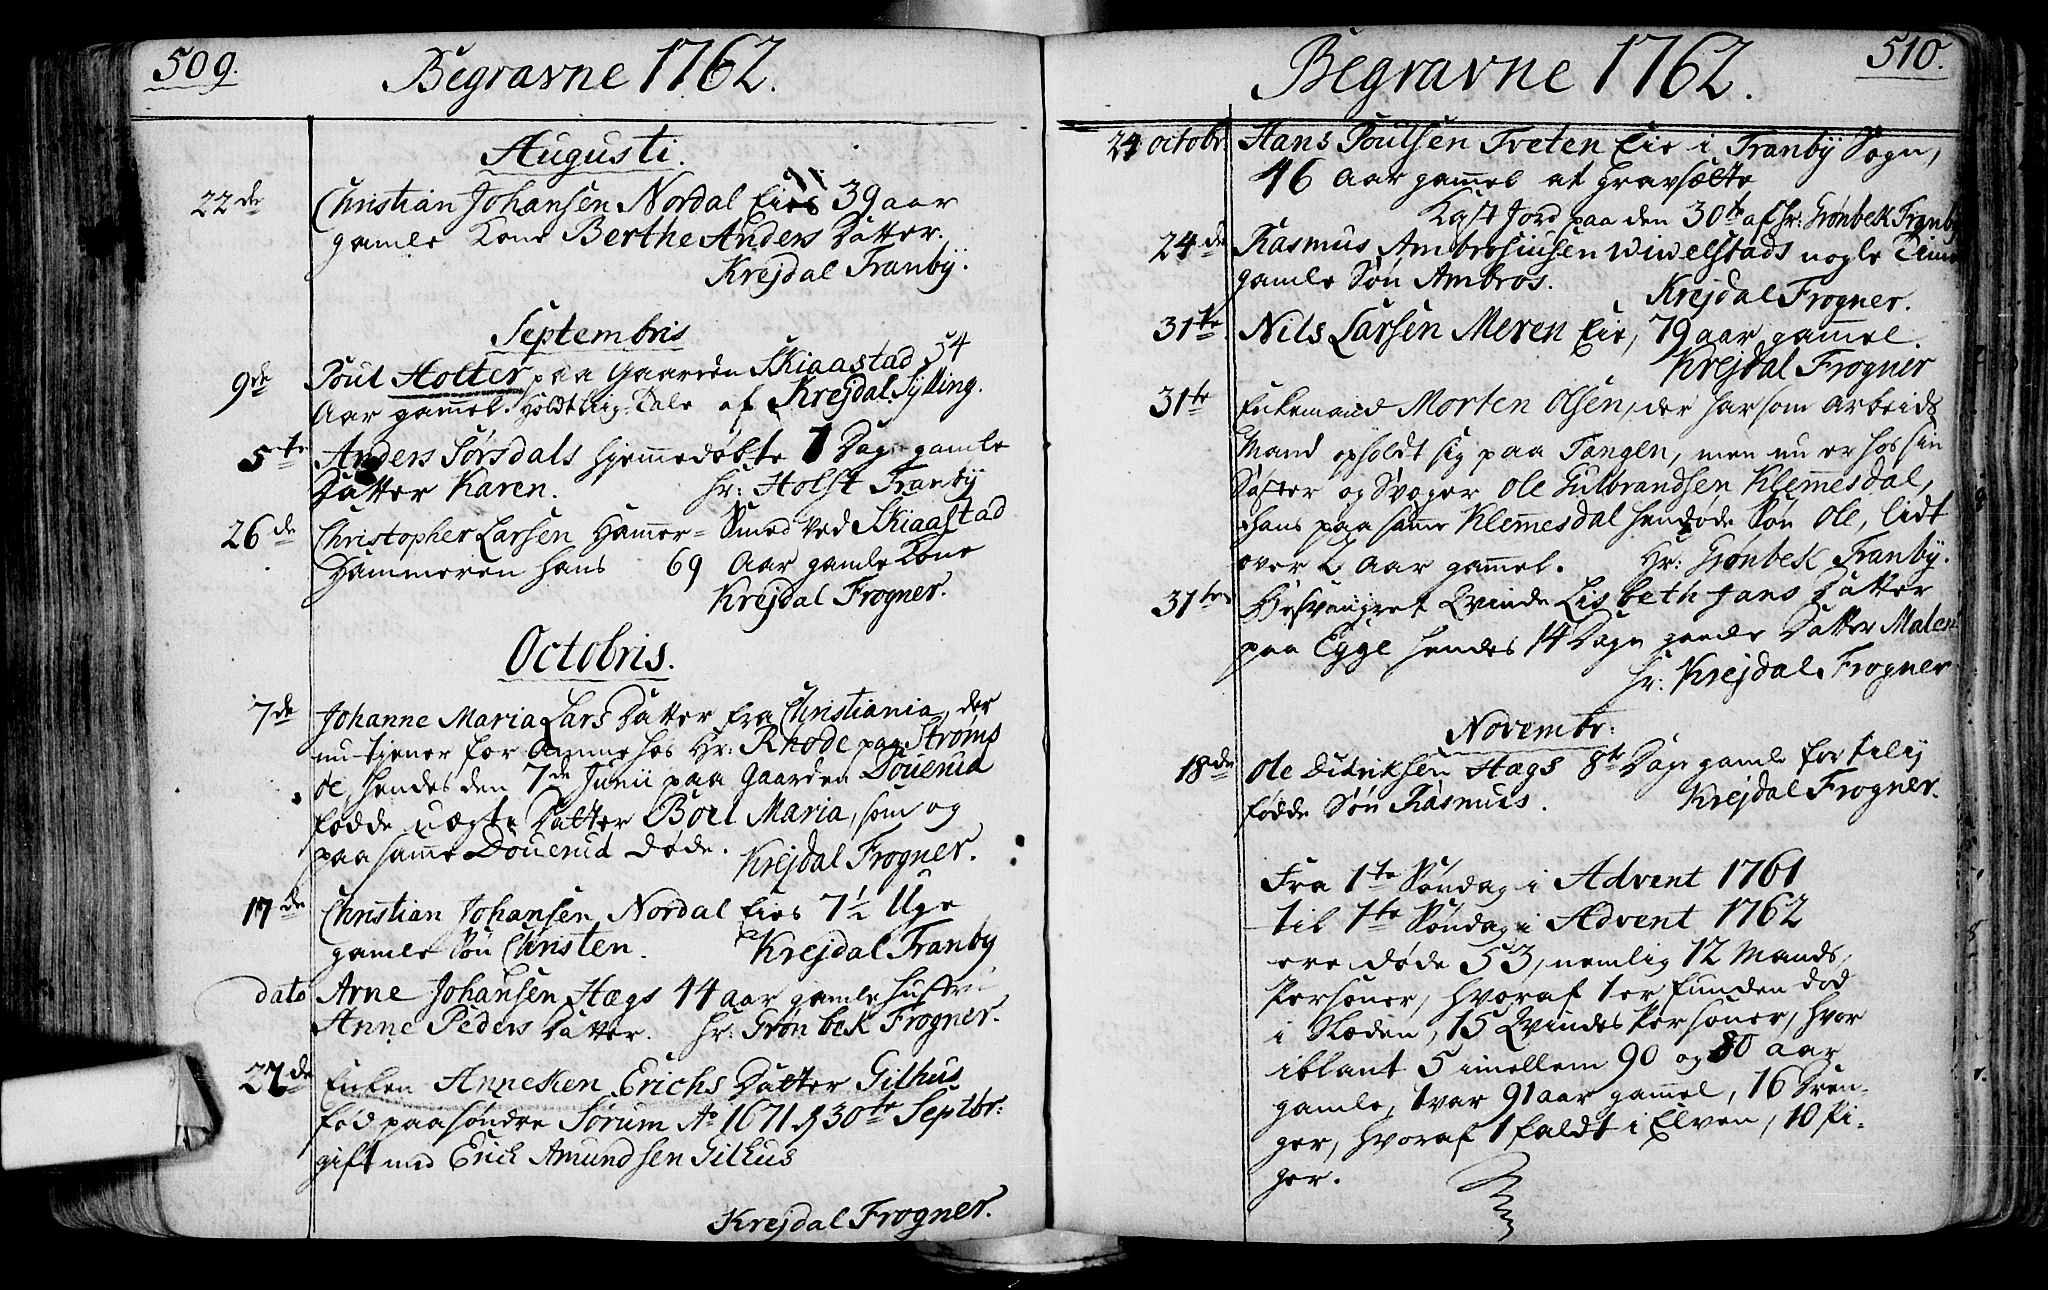 509.
Begravne 1762.
Augusti.
22de Christian Johansen Nordal Eies 39 aar
gamle Kone Berthe Anders Datter.
Krejdal Franby.
Septembris
9de Poul Holter paa Gaarden Skiaastad 54
Aar gammel. Holdt Liig-Tale af Krejdal Sylling.
5te Anders Sørsdals hjemmedøbte 7 Dage gamle
Datter Karen. Hr: Holst Franby
26de Christopher Larsen Hammer-Smed ved Skiaastad
Hammeren hans 69 Aar gamle Kone
Krejdal Frogner.
Octobris.
7de Johanne Maria Lars Datter fra Christiania, der
nu tjener for Amme hos Hr: Rhode paa Strøms
øe, hendes den 7de Junii paa Gaarden Douerud
fødde uægte Datter Boel Maria, som og
paa samme Douerud døde. Krejdal Frogner.
17de Christian Johansen Nordal Eies 7 1/2 Uge
gamle Søn Christen. Krejdal Franby
dato Arne Johansen Hægs 44 aar gamle Hustru
Anne Peders Datter. Hr: Grønbek Frogner.
22de Enken Anneken Erichs Datter Gilhus
fød paa søndre Sørum Ao 1671 d 30te Septbr:
gift med Erich Amundsen Gilhus
Krejdal Frogner.
510.
Begravne 1762.
24 octobr Hans Poulsen Tveten Eie i Franby Sogn,
46 Aar gammel
Kast Jord paa den 30te af Hr: Grønbek Franby
24de Rasmus Ambrosiusen Wiwelstads nogle Time
gamle Søn Ambros. Krejdal Frogner.
31te Nils Larsen Meren Eie, 79 aar gammel.
Krejdal Frogner
31te Enkemand Morten Olsen, der har som Arbeids
Mand opholdt sig paa Tangen, men nu er hos sin
Søster og Svoger Ole Gulbrandsen Klemmesdal,
hans paa samme Klemmesdal hendøde Søn Ole, lidt
over 2 Aar gammel. Hr: Grønbek Franby.
31te Besvangret Qvinde Lisbeth Jans Datter
paa Egge hendes 14 Dage gamle Datter Malene
Hr: Krejdal Frogner
Novembr:
18de Ole Didriksen Hægs 8te Dage gamle for tilig
fødde Søn Rasmus. Krejdal Frogner.
Fra 1te Søndag i Advent 1761
til 1te Søndag i Advent 1762
ere døde 53, nemlig 12 Mands
Personer, hvoraf 1 er funden død
i Sleden, 15 Qvindes Personer, hvor
iblant 5 imellem 90 og 80 aar
gamle, 1 var 91 aar gammel, 16 Dren-
ger, hvoraf 1 faldt i Elven, 10 Pi-
ger.